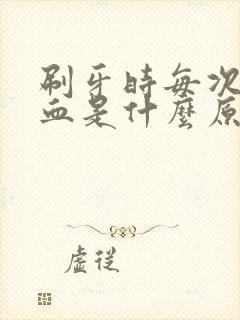 刷牙時每次
血是什麼原
虛從